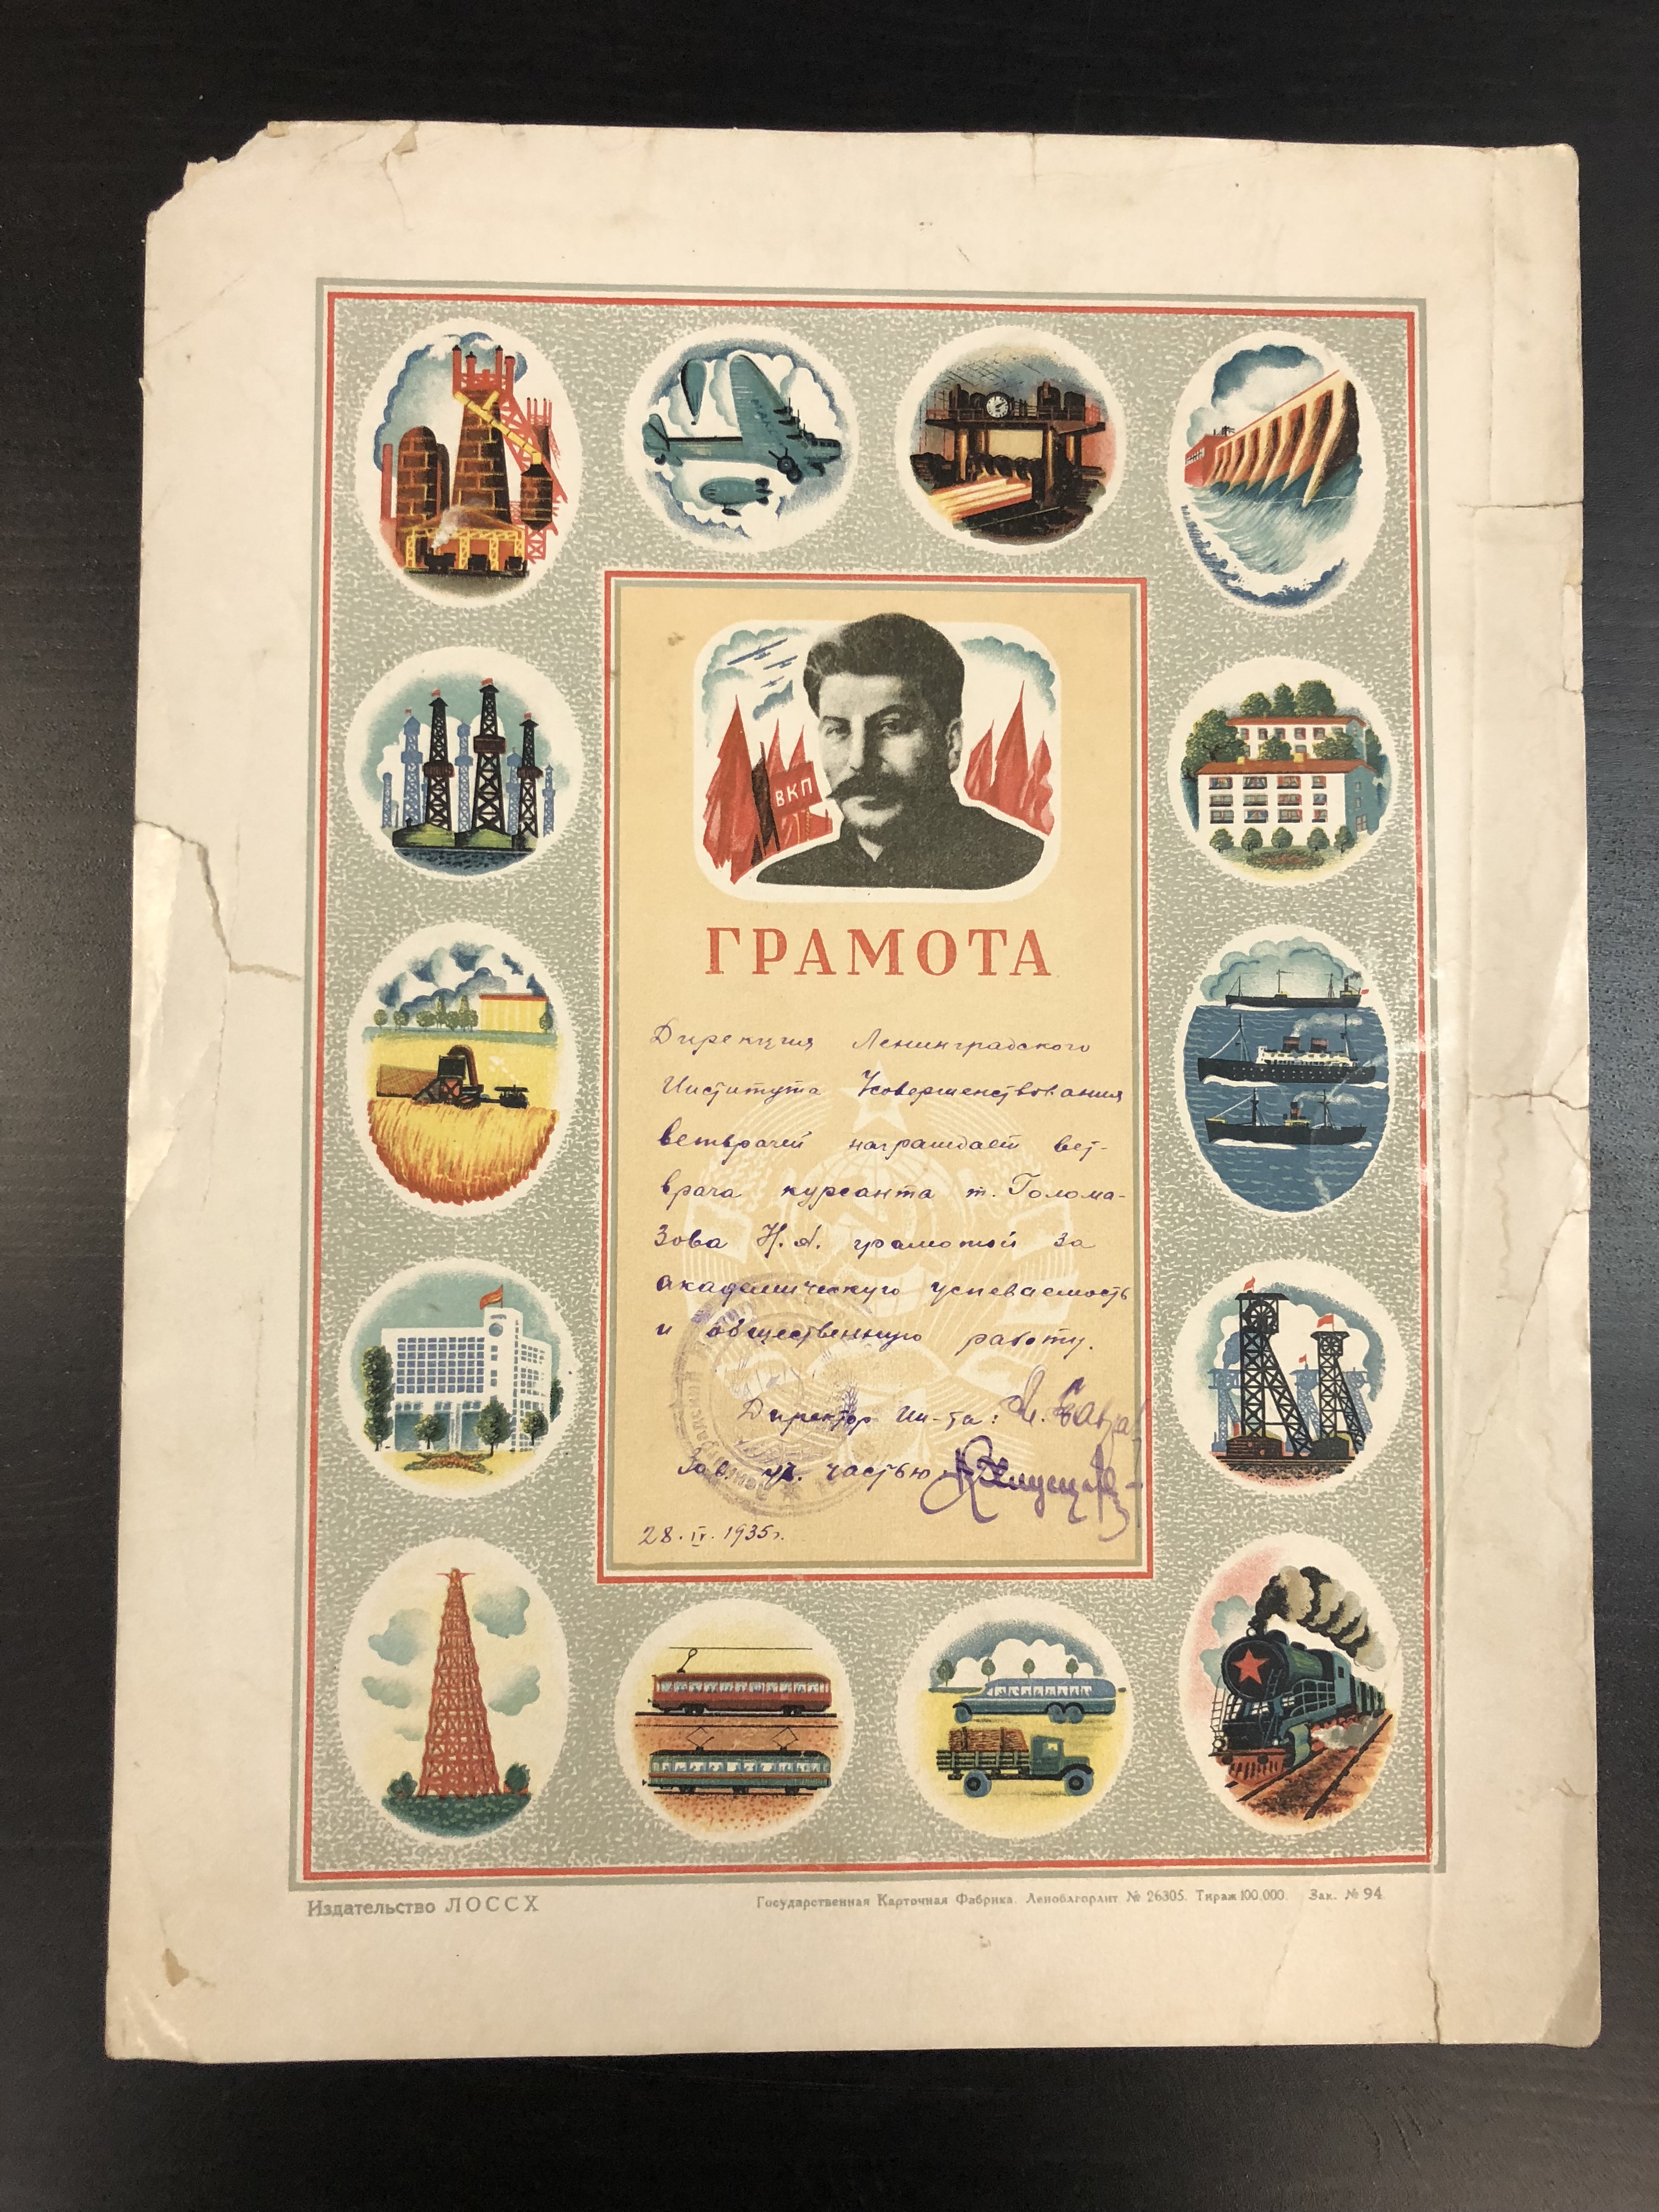 ВКП
ГРАМОТА
Дирекция Ленинградского
Института Усовершенствования
ветврачей награждает вет-
врача курсанта т. Голома-
зова Н.А. грамотой за
академическую успеваемость
и общественную работу.
Директор Ин-та:
Зав. уч. частью
28.IV.1935г.
Издательство ЛОССХ
Государственная Карточная Фабрика. Леноблгорлит № 26305. Тираж 100.000. Зак. № 94